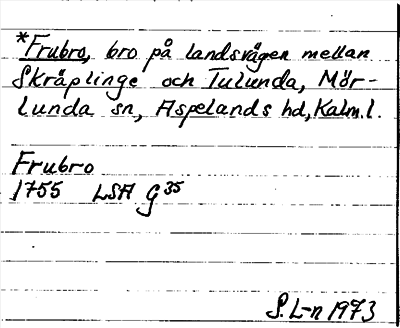 *Frubro, bro på landsvägen mellan
Skräplinge och Tulunda, Mör-
lunda sn, Aspelands hd, Kalm.l.
Frubro
1755 LSA G 35
S. L-n 1973